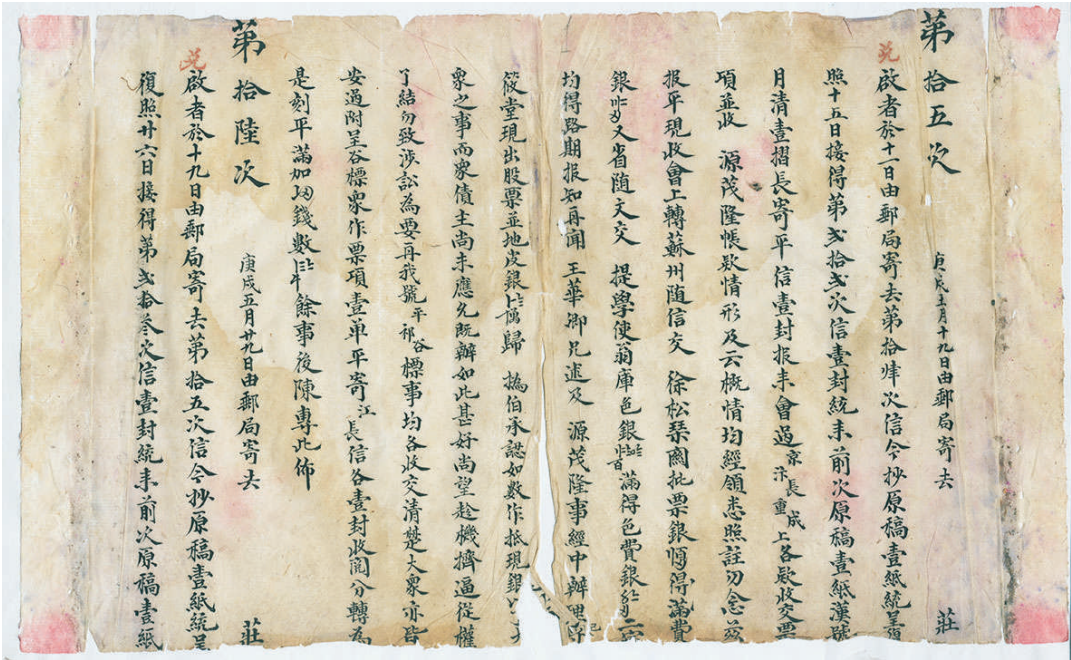 第拾五次
月十九日由郵局寄去 莊
啟者於十一日由郵局寄去第拾肆次信今抄原稿壹紙統呈
照十五日接得第弍拾弍次信壹封統来前次原稿壹紙漢號
月清壹摺長寄平信壹封报来會過京汴長重成上各款收交票
項並收 源茂隆帳欵情形及云概情均經領悉照註勿念茲
报平現收會上轉蘇州随信交 徐松琹 批票銀 得滿費
銀 又省随文交 提學使翁庫色銀 滿得色費銀
均得路期报知再聞 王華卿兄述及 源茂隆事經中辦理
筱堂現出股票並地皮銀 歸 撝伯承認如數作抵現銀
衆之事而衆債主尚未應允既辦如此甚好尚望趁機擠逼從權
了結勿致涉訟為要再我號平祁谷標事均各收交清楚大衆亦皆
安過附呈谷標衆作票項壹单平寄江長信各壹封收閱分轉為
是刻平滿加 錢數 餘事後陳專此佈
第拾陸次
庚戌五月廿九日由郵局寄去 莊
啟者於十九日由郵局寄去第拾五次信今抄原稿壹紙統呈
復照廿六日接得第弍拾叁次信壹封統来前次原稿壹紙